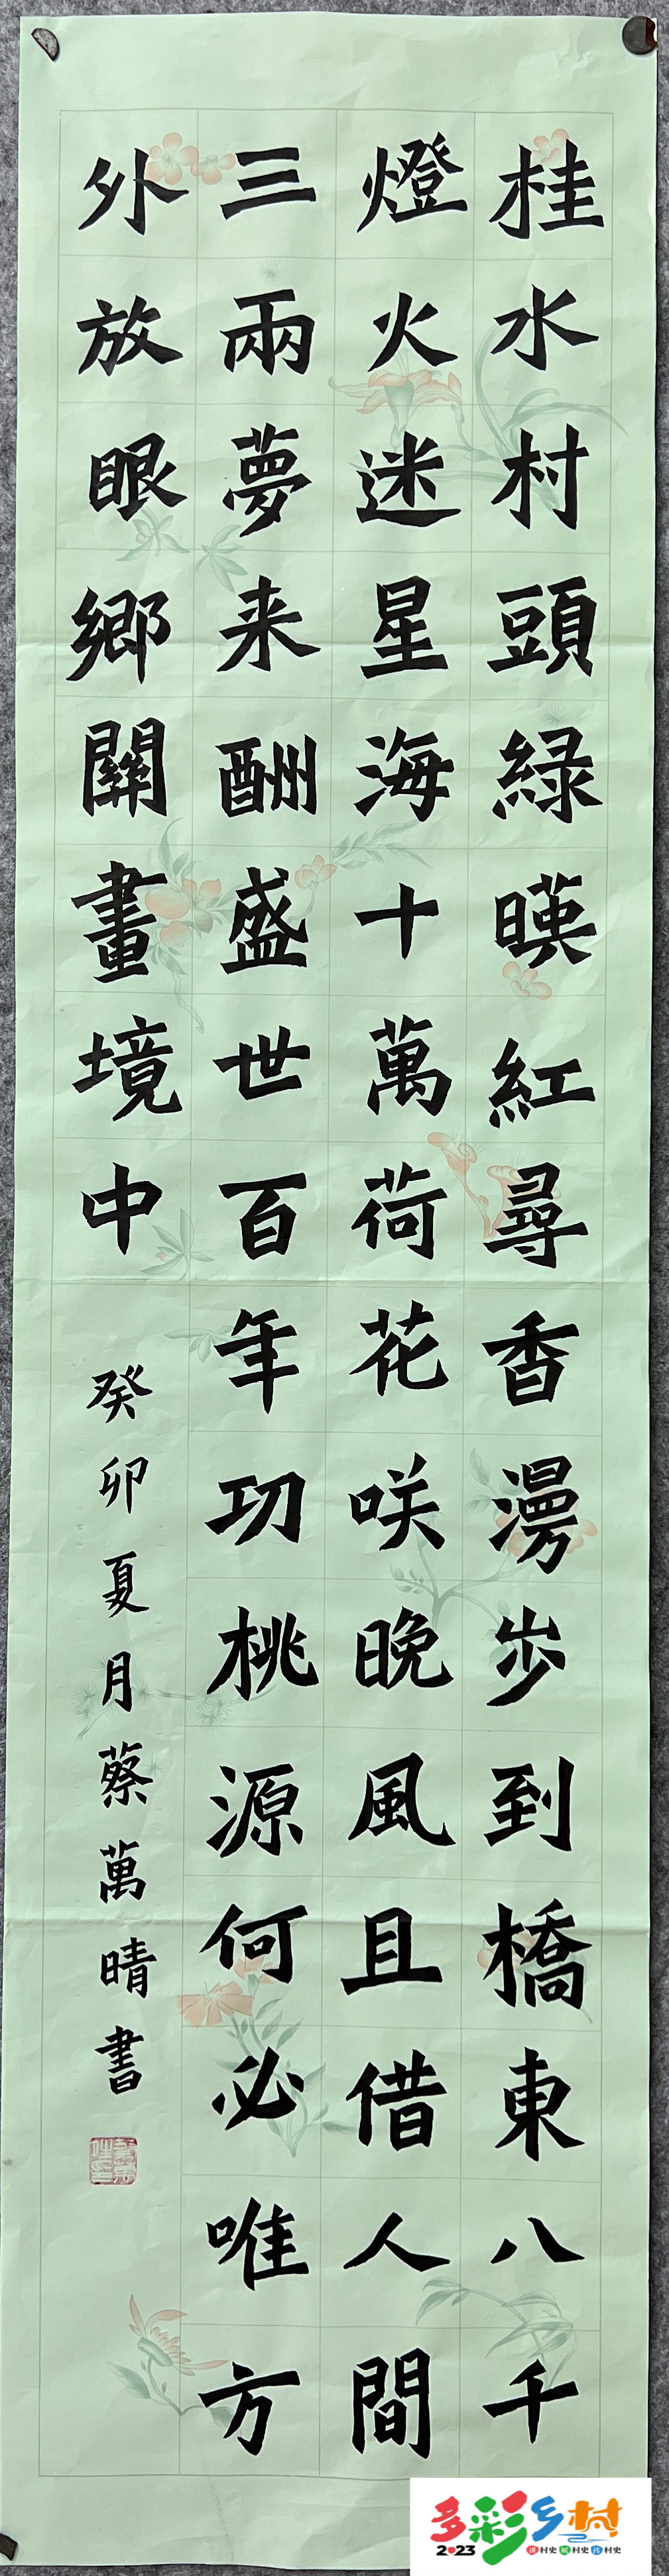 桂水村頭緑暎紅尋香漫步到橋東八千
燈火迷星海十萬荷花咲晚風且借人間
三兩夢来酬盛世百年功桃源何必唯方
外放眼鄉關畫境中
癸卯夏月蔡萬晴書
多彩乡村
2023
读村史 展村史 传村史